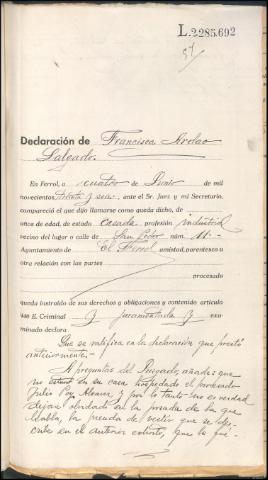 L.2285.692
57
Declaración de Francisca
Salgado.
En Ferrol, a cuatro de Junio de mil
novecientos treinta y seis, ante el Sr. Juez y mi Secretario,
compareció el que dijo llamarse como queda dicho, de
años de edad, de estado casada profesión industrial
vecino del lugar o calle de San Pedro núm. 11-
Ayuntamiento de El Ferrol amistad, parentesco u
otra relación con las partes
procesado
queda instruido de sus derechos y obligaciones y contenido artículo
E. Criminal y juramentada y
minado declara
Que se ratifica en la declaración que prestó
anteriormente.-
A preguntas del Juzgado, añade: que
no estuvo en su casa hospedado el procesado
Julio y por lo tanto no es verdad
dejara olvidado en la posada de la que
habla, la prenda de vestir que se
en el anterior que le fué